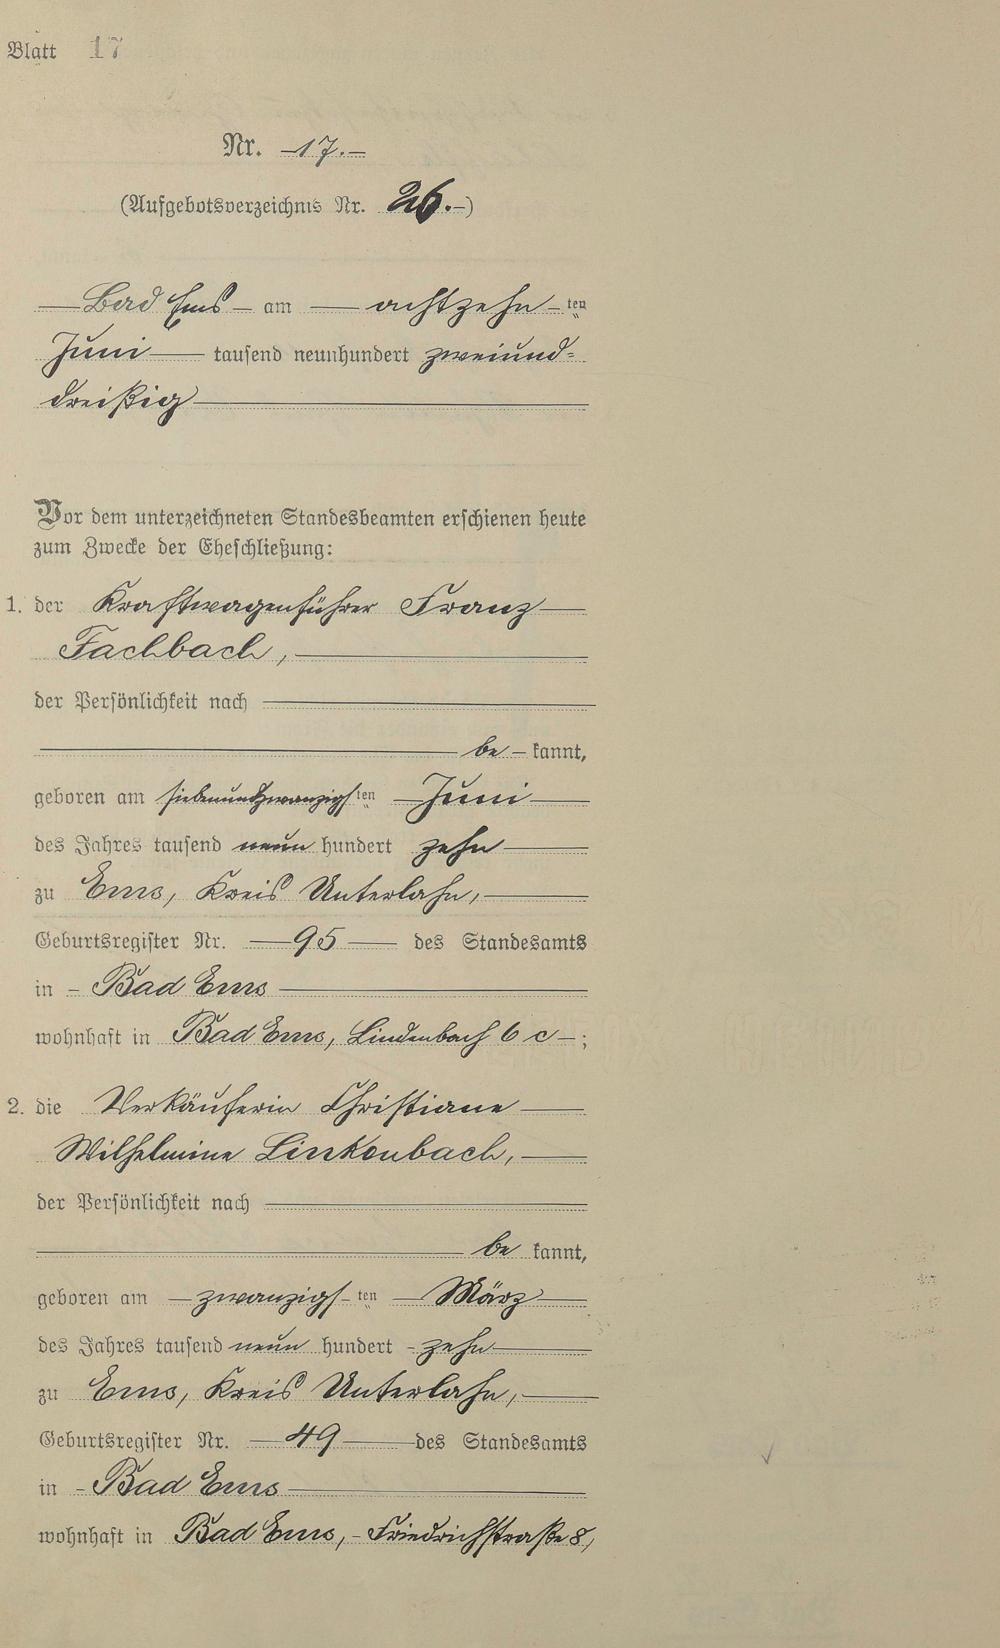 Blatt 17
Nr. —17.—
(Aufgebotsverzeichnis Nr. 26.—)
— Bad Ems — am — achtzehn — ten
Juni — tausend neunhundert zweiund-
dreißig —
Vor dem unterzeichneten Standesbeamten erschienen heute
zum Zwecke der Eheschließung:
1. der Kraftwagenführer Franz —
Fachbach, —
der Persönlichkeit nach —
— be — kannt,
geboren am siebenundzwanzigsten Juni —
des Jahres tausend neun hundert zehn —
zu Ems, Kreis Unterlahn, —
Geburtsregister Nr. — 95 — des Standesamts
in - Bad Ems —
wohnhaft in Bad Ems, Lindenbach 6 c — ;
2. die Verkäuferin Christiane —
Wilhelmine Linkenbach, —
der Persönlichkeit nach —
— be kannt,
geboren am — zwanzigsten — März —
des Jahres tausend neun hundert - zehn —
zu Ems, Kreis Unterlahn, —
Geburtsregister Nr. — 49 — des Standesamts
in - Bad Ems —
wohnhaft in Bad Ems, - Friedrichstraße 8,